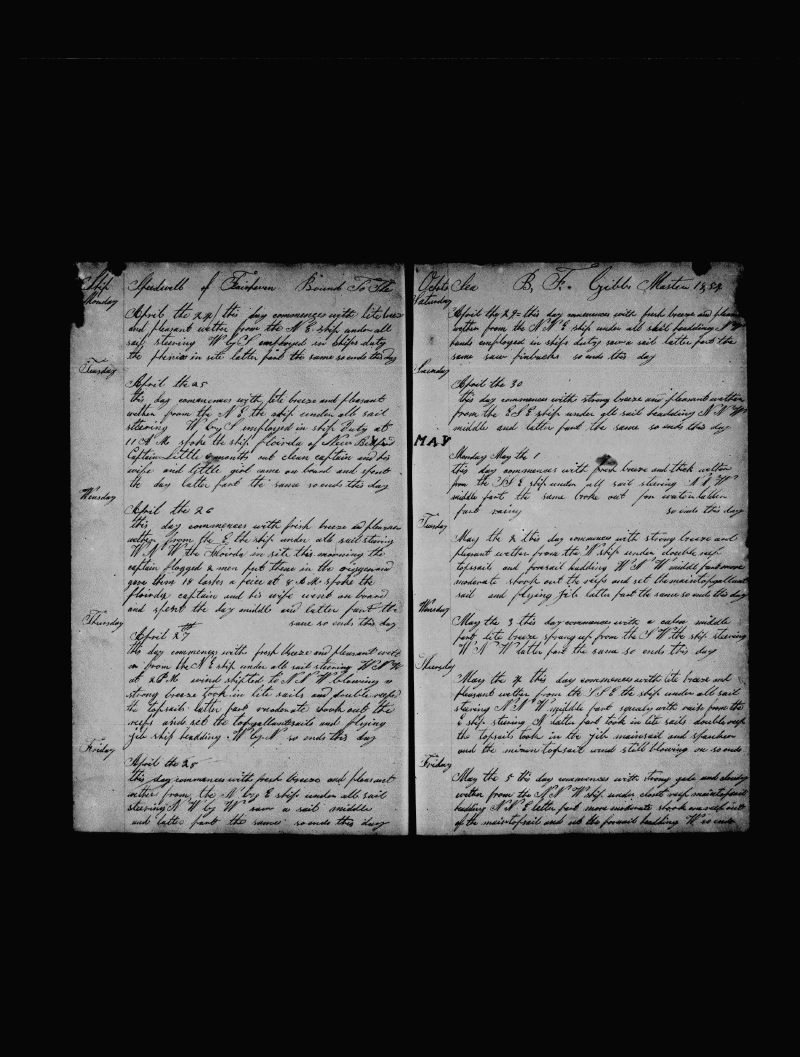 Ship Speedwell of Fairhaven Bound To The
Monday
April the 24 this day commences with lite breze
and pleasant wether from the N E ship under all
sail steering W by S employed in ships duty
the in site latter part the same so ends this day
Tuesday
April the 25
this day commences with lite breze and pleasant
wether from the N E the ship under all sail
steering W by S employed in ship duty at
11 A M spoke the ship floirida of New Bedford
Captain Little months out clean captain and his
wife and little girl came on bord and spent
the day latter part the same so ends this day
Wensday
April the 26
this day commences with fresh breeze and pleasan
wether from the E the ship under all sail stering
W N W the floirida in site this morning the
captain flogged 2 men put them in the riggen and
gave them 18 lashes a peice at 8 A M spoke the
floirida captain and his wife went on board
and spent the day middle and latter part the
same so ends this day
Thursday
April 27th
the day commences with fresh breeze and pleasant weth
er from the N E ship under all sail steering W N W
at 2 P M wind shifted to N N W blowing a
strong breeze took in lite sails and double reefed
the topsails latter part moderate shook out the
reefs and set the topgallantsails and flying
jib ship heading W by N so ends this day
Friday
April the 28
this day commences with fresh breeze and pleasant
wether from the N by E ship under all sail
steering N W by W saw a sail middle
and latter part the same so ends this day
Sea B, F. Gibbs Master 1854
Saturday
April the 29 this day commences with fresh breeze and pleasan
wether from the N N E ship under all sail heading N W
hands employed in ships duty saw a sail latter part the
same saw finbacks so ends this day
Sunday
April the 30
this day commences with strong breeze and pleasant wether
from the E N E ship under all sail heading N W W
middle and latter part the same so ends this day
MAY
Monday May the 1
this day commences with fresh breeze and thick wether
from the E ship under all sail steering N W
middle part the same broke out for water latter
part rainy so ends this day
Tusday
May the 2 this day commences with strong breeze and
plesant wether from the N ship under double reef
topsails and foresail heading W N W middle part more
moderate shook out the reefs and set the maintopgallant
sail and flying jib latter part the same so ends this day
Wensday
May the 3 this day commences with a calm middle
part lite breeze sprung up from the S W the ship steering
W N W latter part the same so ends this day
Thursday
May the 4 this day commences with lite breeze and
pleasant wether from the E the ship under all sail
steering N N W middle part squaly with rain from the
E ship stering N latter part took in lite sails double reef
the topsails took in the jib mainsail and spanker
and the mizen topsail wind still blowing on so ends
Friday
May the 5 this day commences with strong gale and cloudy
wether from the N N W ship under closte reef maintopsail
heading N N E latter part more moderate shook reef out
of the maintopsail and set the foresail heading W so ends